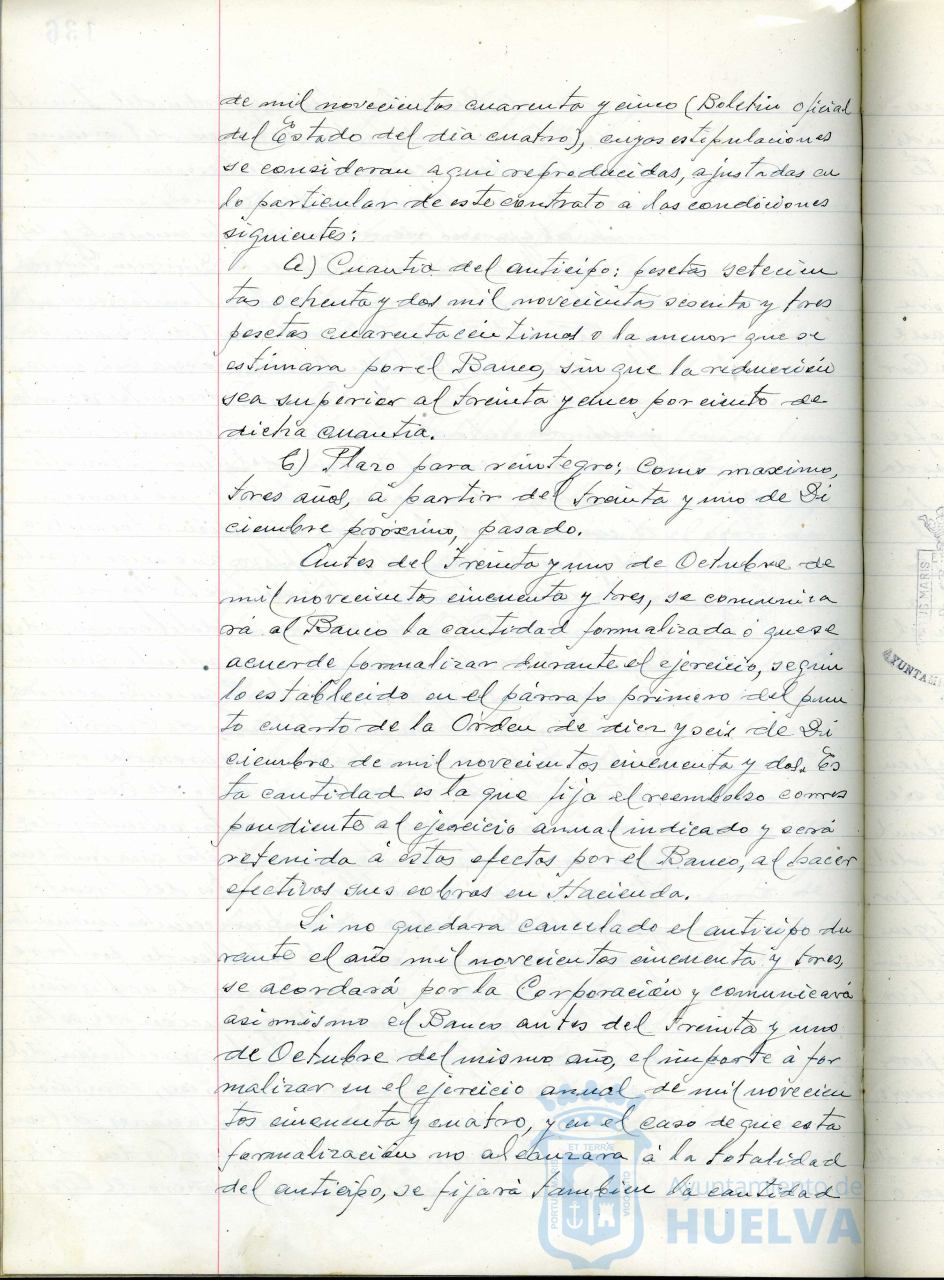 de mil novecientos cuarenta y cinco (Boletin Oficial
del Estado del dia cuatro), cuyas estipulaciones
se consideran aqui reproducidas, ajustadas en
lo particular de este contrato a las condiciones
siguientes:
a) Cuantia del anticipo: pesetas setecien
tas ochenta y dos mil novecientas sesenta y tres
pesetas cuarenta centimos o la menor que se
estimara por el Banco, sin que la reducción
sea superior al treinta y cinco por ciento de
dicha cuantia.
b) Plazo para reintegro: Como maximo,
tres años, á partir del treinta y uno de Di
ciembre próximo, pasado.
Antes del treinta y uno de Octubre de
mil novecientos cincuenta y tres, se comunica
rá al Banco la cantidad formalizada ó que se
acuerde formalizar durante el ejercicio, segun
lo establecido en el párrafo primero del pun
to cuarto de la Orden de diez y seis de Di
ciembre de mil novecientos cincuenta y dos. Es
ta cantidad es la que fija el reembolso corres
pondiente al ejercicio annual indicado y será
retenida á estos efectos por el Banco, al hacer
efectivos sus cobros en Hacienda.
Si no quedara cancelado el anticipo du
rante el año mil novecientos cincuenta y tres,
se acordará por la Corporación y comunicará
asimismo el Banco antes del treinta y uno
de Octubre del mismo año, el importe á for
malizar en el ejercicio annual, de mil novecien
tos cincuenta y cuatro, y en el caso de que esta
formalización no alcanzara á la totalidad
del anticipo, se fijará tambien la cantidad
Ayuntamiento de
HUELVA
ET TERRÆ
CUSTODIA
136
15 MARS
AYUNTAMI